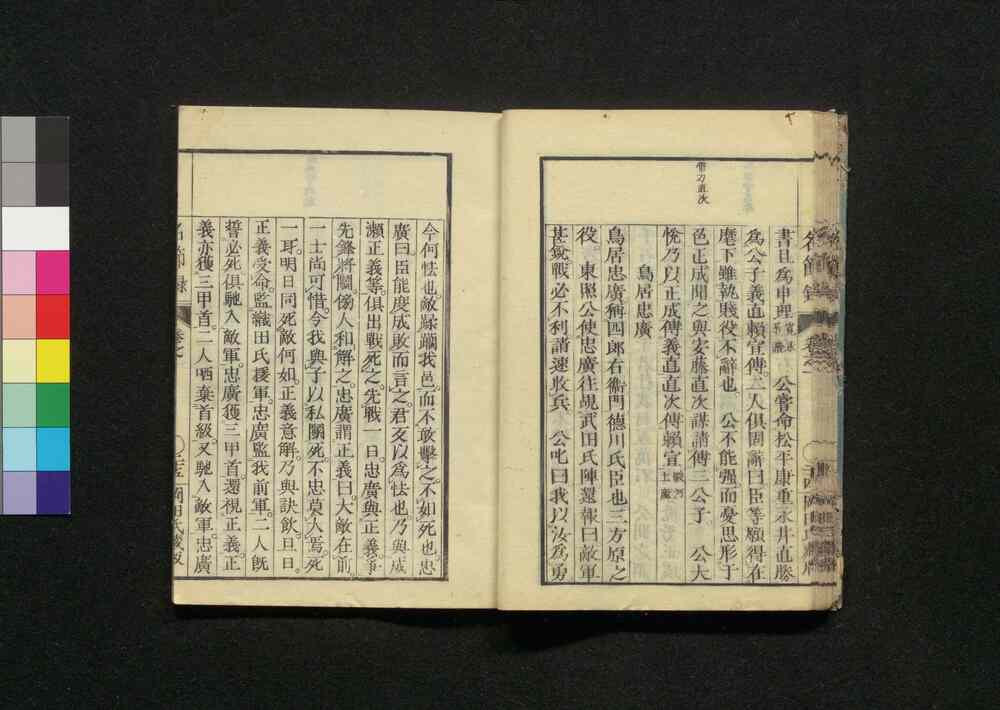 帶刀直次
書且爲申理
公嘗命松平康重永井直勝
爲公子義直賴宣傳二人俱固辭曰臣等願得在
麾下雖執賤役不辭也 公不能强而憂思形于
色正成聞之與安藤直次謀請傳二公子 公大
悅乃以正成傳義直直次傳賴宣
鳥居忠廣
鳥居忠廣稱四郎右衞門德川氏臣也三方原之
役 東照公使忠廣往覘武田氏陣還報曰敵軍
甚銳戰必不利請速收兵 公叱曰我以汝爲勇
今何怯也敵蹂躪我邑而不敢擊之不如死也忠
廣曰臣能度成敗而言之君反以爲怯也乃與成
瀨正義等俱出戰死之先戰一日忠廣與正義爭
先鋒將鬭傍人和解之忠廣謂正義曰大敵在前
一士尙可惜今我與子以私鬭死不忠莫大焉死
一耳明日同死敵何如正義意解乃與訣飮旦日
正義受命監織田氏援軍忠廣監我前軍二人旣
誓必死俱馳入敵軍忠廣獲三甲首還視正義正
義亦獲三甲首二人哂棄首級又馳入敵軍忠廣
名節錄 卷之 岡田氏藏板